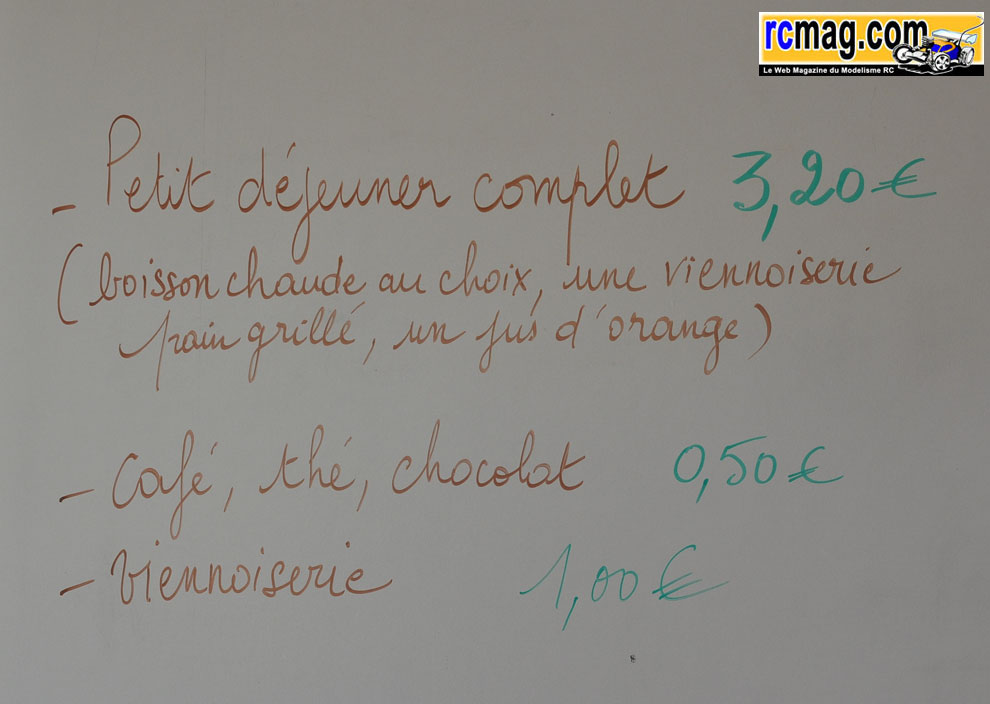 rcmag.com
Le Web Magazine du Modelisme RC
- Petit déjeuner complet 3,20 €
( boisson chaude au choix, une viennoiserie
pain grillé, un jus d'orange )
- Café, thé, chocolat 0,50 €
- Viennoiserie 1,00 €